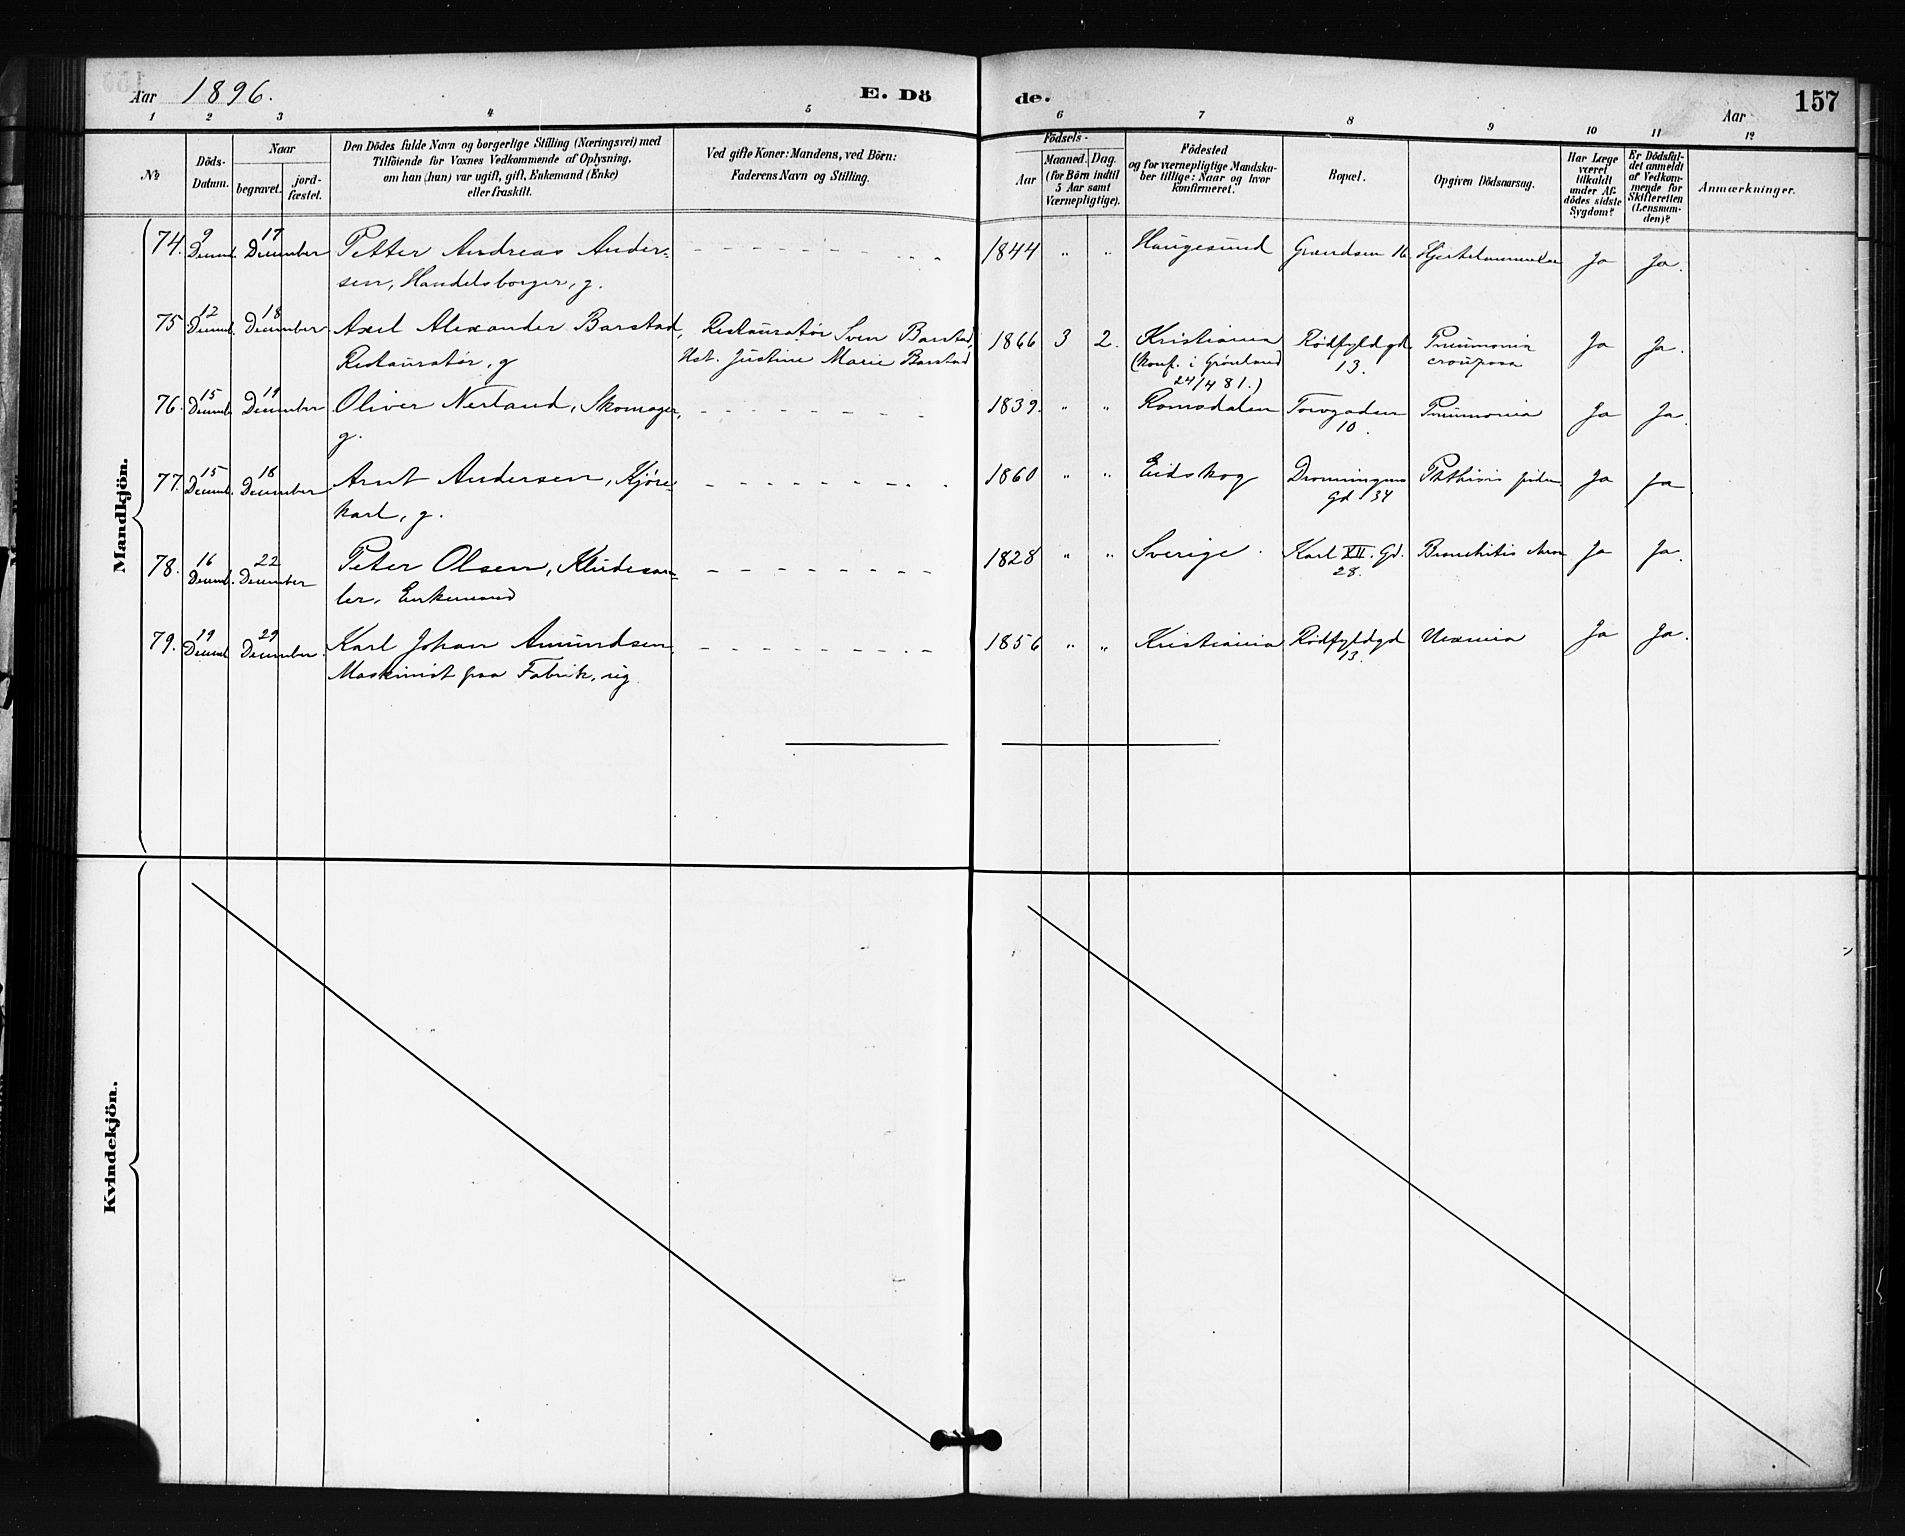 Aar 1896.
E. Dö
de.
Aar
157
1 2 3 4 5 6 7 8 9 10 11 12
No
Döds-
Datum.
Naar
begravet.
jord-
fæstet.
Den Dödes fulde Navn og borgerlige Stilling (Næringsvei) med
Tilföiende for Voxnes Vedkommende af Oplysning,
om han (hun) var ugift, gift, Enkemand (Enke)
eller fraskilt.
Ved gifte Koner: Mandens, ved Börn:
Faderens Navn og Stilling.
Födsels-
Aar
Maaned. Dag.
(for Börn indtil
5 Aar samt
Værnepligtige).
Födested
og for værnepligtige Mandska-
ber tillige: Naar og hvor
konfirmeret.
Bopæl.
Opgiven Dödsaarsag.
Har Læge
været
tilkaldt
under Af-
dödes sidste
Sygdom?
Er Dödsfal-
det anmeldt
af Vedkom-
mende for
Skifteretten
(Lensman-
den)?
Anmærkninger.
Mandkjön.
74. 9 Decemb. 17 December Petter Andreas Ander-
sen, Handelsborger, g.
1844 " " Haugesund Grændsen 16 Ja Ja.
75 12 Decemb. 18 December Axel Alexander Barstad,
Restauratør, g
Restauratør Sven Barstad,
Hst. Justine Marie Barstad
1866 3 2. Kristiania
(konf. i Grønland
24/4 81.)
Rødfyldgd.
13.
Pneumonia
crouposa
Ja Ja.
76. 15 Decemb. 19 December Oliver Nerland, Skomager,
g.
1839. " " Romsdalen Torvgaden
10.
Pneumonia Ja Ja.
77. 15 Decemb. 18 December Arnt Andersen, Kjøre-
karl, g.
1860 " " Eidskog Dronningens
Gd 34
Phthisis Ja Ja.
78. 16 Decemb. 22 December Peter Olsen, Kludesam-
ler, Enkemand
1828 " " Sverige. Karl XII. Gd.
28.
Bronchitis chron Ja Ja.
79. 19 Decemb 29 December. Karl Johan Amundsen,
Maskinist paa Fabrik, ug.
1856 " " Kristiania Rødfyldgd
13.
Uræmia Ja Ja.
Kvindekjön.